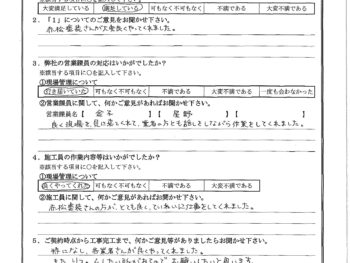 大変満足している 満足している 可も不可もなく 不満である 大変不満である
2．「1」についてのご意見をお聞かせ下さい。
赤松塗装さんが大変良くやってくれました。
3．弊社の営業課員の対応はいかがでしたか？
※該当する項目に○を記入して下さい。
①現場管理について
行き届いていた 可もなく不可もなく 不満である 大変不満である 一度も会わなかった
②営業課員に関して、何かご意見があればお聞かせ下さい。
営業課員名【 金子 】【 星野 】
良く現場を見に来てくれて、業者の方とも話しをしながら作業をしてくれました。
4．施工員の作業内容等はいかがでしたか？
※該当する項目に○を記入して下さい。
①現場管理について
良くやってくれた 可もなく不可もなく 不満である 大変不満である
②施工員に関して、何かご意見があればお聞かせ下さい。
赤松塗装さんの方が、とても良く、ていねいに仕事をしてくれました。
5．ご契約時点から工事完工まで、何かご意見等がありましたらお聞かせ下さい。
特になし、各業者さんが良くやってくれました。
お願いしたいと思います。